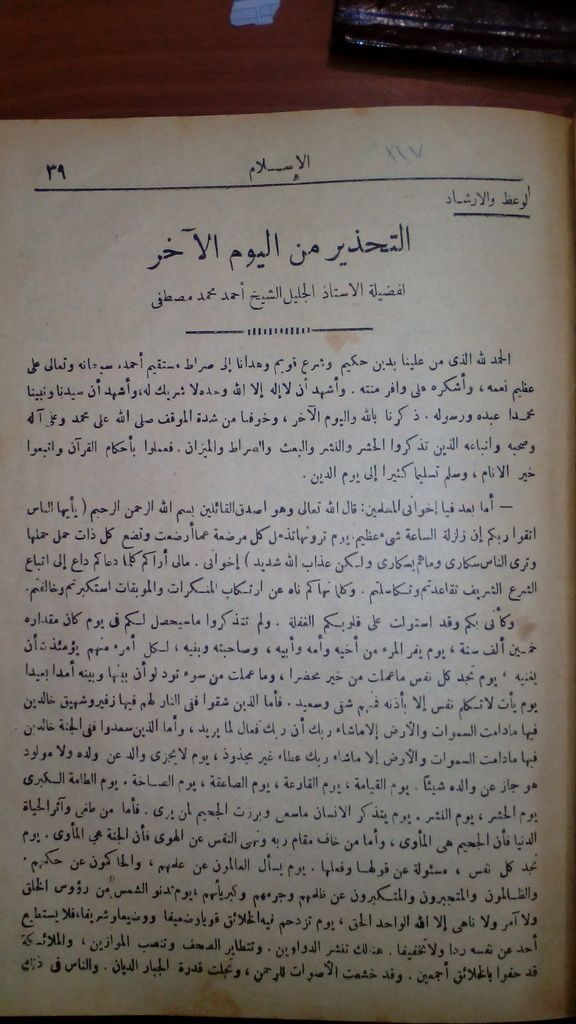 ٢٢٧
٣٩ الإســلام
الوعظ والارشاد
التحذير من اليوم الآخر
لفضيلة الاستاذ الجليل الشيخ أحمد محمد مصطفى
الحمد لله الذى من علينا بدين حكيم وشرع قويم وهدانا إلى صراط مستقيم أحمده سبحانه وتعالى على
عظيم نعمه ، وأشكره على وافر منته . وأشهد أن لا إله إلا الله وحده لا شريك له، وأشهد أن سيدنا ونبينا
محمدا عبده ورسوله . ذكرنا بالله واليوم الآخر ، وخوفنا من شدة الموقف صلى الله على محمد وعلى آله
وصحبه واتباعه الذين تذكروا الحشر والنشر والبعث والصراط والميزان . فعملوا بأحكام القرآن واتبعوا
خير الانام ، وسلم تسليما كثيرا إلى يوم الدين .
— أما بعد فيا إخوانى المسلمين: قال الله تعالى وهو اصدق القائلين بسم الله الرحمن الرحيم ( يأيها الناس
اتقوا ربكم إن زلزلة الساعة شىء عظيم: يوم ترونها تذهل كل مرضعة عما أرضعت وتضع كل ذات حمل حملها
وترى الناس سكارى وماهم بسكارى ولكن عذاب الله شديد ) إخوانى . مالى أراكم كلما دعاكم داع إلى اتباع
الشرع الشريف تقاعدتم وتكاسلتم . وكلما نهاكم ناه عن ارتكاب المنكرات والموبقات استكبرتم وخالفتم.
وكأنى بكم وقد استولت على قلوبكم الغفلة . ولم تتذكروا ماسيحصل لكم فى يوم كان مقداره
خمسين ألف سنة ، يوم يفر المرء من أخيه وأمه وأبيه ، وصاحبته وبنيه ، لكل أمرء منهم يؤمئذ شأن
يغنيه ، يوم تجد كل نفس ماعملت من خير محضرا ، وما عملت من سوء تود لو أن بينها وبينه أمدا بعيدا
يوم يأت لاتكلم نفس إلا بأذنه فمنهم شقى وسعيد . فأما الذين شقوا ففى النار لهم فيها زفير وشهيق خالدين
فيها مادامت السموات والأرض إلا ماشاء ربك أن ربك فعال لما يريد ، وأما الذين سعدوا ففى الجنة خالدين
فيها مادامت السموات والأرض إلا ماشاء ربك عطاء غير مجذوذ ، يوم لايجزى والد عن ولده ولا مولود
هو جاز عن والده شيئا . يوم القيامة ، يوم القارعة ، يوم الصاعقة ، يوم الصاخة . يوم الطامة الكبرى
يوم الحشر ، يوم النشر . يوم يتذكر الانسان ماسعى وبرزت الجحيم لمن يرى . فأما من طغى وآثر الحياة
الدنيا فأن الجحيم هى المأوى ، وأما من خاف مقام ربه ونهى النفس عن الهوى فأن الجنة هى المأوى . يوم
تجد كل نفس ، مسئولة عن قولها وفعلها . يوم يسأل العالمون عن علمهم ، والحاكمون عن حكمهم .
والظالمون والمتجبرون والمتكبرون عن ظلمهم وجرمهم وكبريائهم ، يوم تدنو الشمس من رؤوس الخلق
ولا آمر ولا ناهى إلا الله الواحد الحق ، يوم تزدحم فيه الخلائق قويا وضعيفا ووضيعا وشريفا، فلا يستطيع
أحد عن نفسه ردا ولا تخفيفا . هنالك تنشر الدواوين . وتتطاير الصحف وتنصب الموازين ، والملائكة
قد حفوا بالخلائق أجمعين . وقد خشعت الأصوات للرحمن ، وتجلت قدرة الجبار الديان . والناس فى ذلك